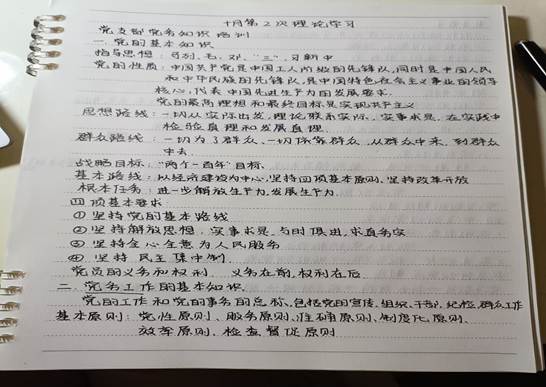 十月第2次理论学习
党支部党务知识培训
一、党的基本知识
指导思想：马列、毛、邓、“三”、习新中
党的性质：中国共产党是中国工人阶级的先锋队，同时是中国人民
和中华民族的先锋队，是中国特色社会主义事业的领导
核心，代表中国先进生产力的发展要求
党的最高理想和最终目标是实现共产主义
思想路线：一切从实际出发，理论联系实际，实事求是，在实践中
检验真理和发展真理
群众路线：一切为了群众，一切依靠群众，从群众中来，到群众
中去
战略目标：“两个一百年”目标
基本路线：以经济建设为中心，坚持四项基本原则，坚持改革开放
根本任务：进一步解放生产力，发展生产力
四项基本要求
①坚持党的基本路线
②坚持解放思想，实事求是，与时俱进，求真务实
③坚持全心全意为人民服务
④坚持民主集中制
党员的义务和权利 义务在前，权利在后
二、党务工作的基本知识
党的工作和党的事务的总称，包括党的宣传、组织、干部、纪检、群众工作
基本原则：党性原则、服务原则、准确原则、制度化原则、
效率原则、检查督促原则